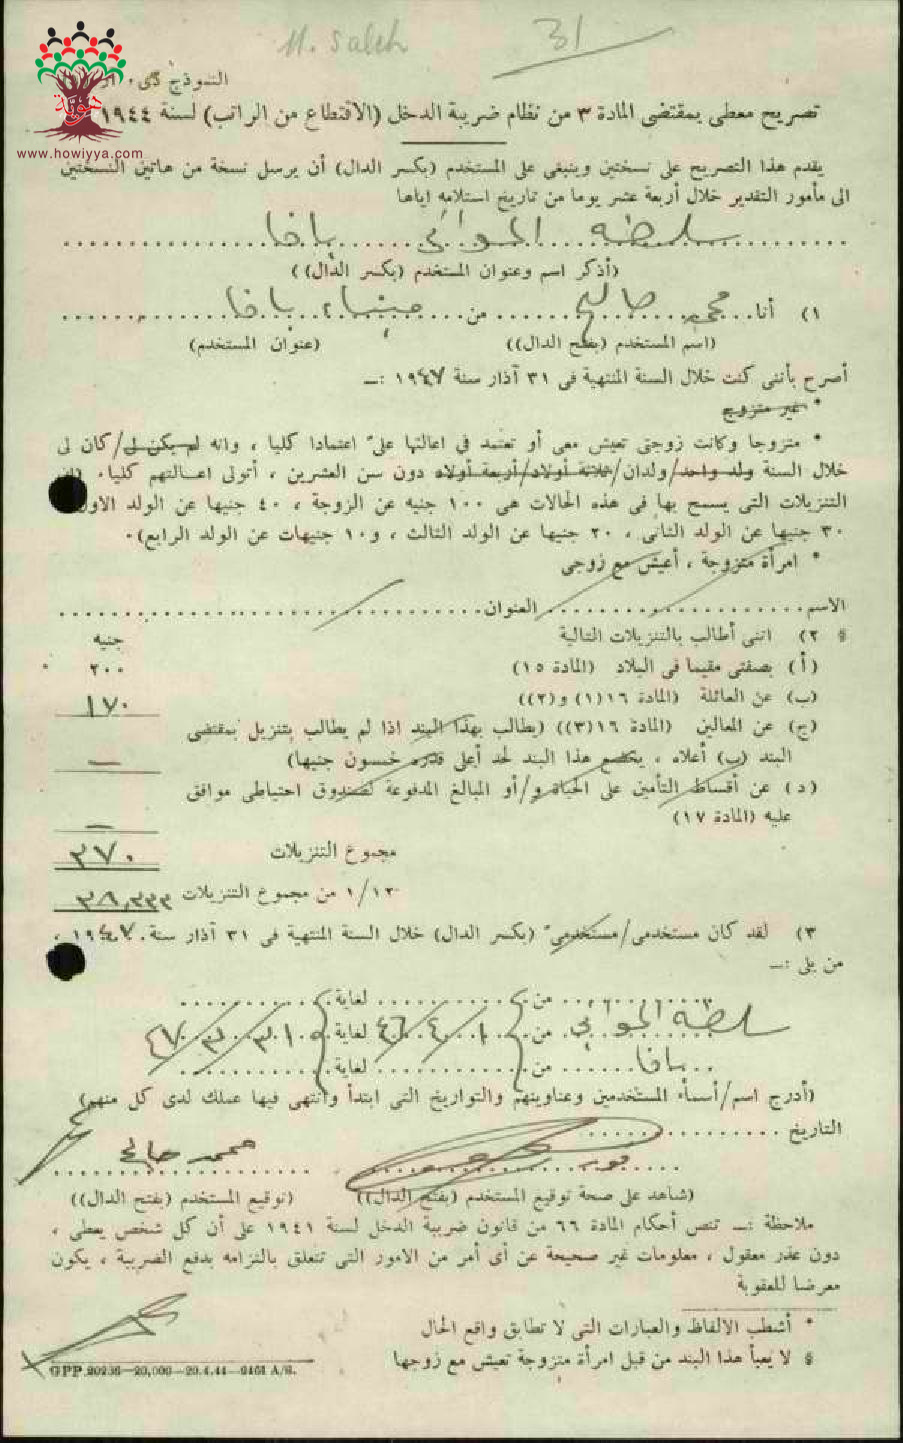 M. Saleh
31
النموذج دى
www.howiyya.com
تصريح معطى بمقتضى المادة ٣ من نظام ضريبة الدخل (الاقتطاع من الراتب) لسنة ١٩٤٤
يقدم هذا التصريح على نسختين وينبغى على المستخدم (بكسر الدال) أن يرسل نسخة من هاتين النسختين
الى مأمور التقدير خلال أربعة عشر يوما من تاريخ استلامه اياها
سلطة الموانى يافا
(أذكر اسم وعنوان المستخدم (بكسر الدال))
١) أنا محمد صالح من ميناء يافا
(اسم المستخدم (بفتح الدال)) (عنوان المستخدم)
أصرح بأننى كنت خلال السنة المنتهية فى ٣١ آذار سنة ١٩٤٧ :ــ
* غير متزوج
* متزوجا وكانت زوجتى تعيش معى أو تعتمد في اعالتها علىّ اعتمادا كليا ، وانه لم يكن لى/كان لى
خلال السنة ولد واحد/ولدان/ثلاثة أولاد/أربعة أولاد دون سن العشرين ، أتولى اعـالتهم كليا. (ان
التنزيلات التى يسمح بها فى هذه الحالات هى ١٠٠ جنيه عن الزوجة ، ٤٠ جنيها عن الولد الاول
٣٠ جنيها عن الولد الثانى ، ٢٠ جنيها عن الولد الثالث ، و١٠ جنيهات عن الولد الرابع).
* امرأة متزوجة ، أعيش مع زوجى
الاسم العنوان
§ ٢) اننى أطالب بالتنزيلات التالية جنيه
(أ) بصفتى مقيما فى البلاد (المادة ١٥) ٢٠٠
(ب) عن العائلة (المادة ١٦(١) و(٢)) ١٧٠
(ج) عن المعالين (المادة ١٦(٣)) (يطالب بهذا البند اذا لم يطالب بتنزيل بمقتضى
البند (ب) أعلاه ، يخضع هذا البند لحد أعلى قدره خمسون جنيها) —
(د) عن أقساط التأمين على الحياة و/أو المبالغ المدفوعة لصندوق احتياطى موافق
عليه (المادة ١٧) —
مجموع التنزيلات ٣٧٠
١/١٢ من مجموع التنزيلات
٣) لقد كان مستخدمى/مستخدمىّ (بكسر الدال) خلال السنة المنتهية فى ٣١ آذار سنة ١٩٤٧ ،
من يلى :ــ
من لغاية
سلطة الموانى من ١/٤/٤٦ لغاية ٣١/٣/٤٧
يافا من لغاية
(أدرج اسم/أسمأ المستخدمين وعناوينهم والتواريخ التى ابتدأ وانتهى فيها عملك لدى كل منهم)
التاريخ
محمد صالح
(شاهد على صحة توقيع المستخدم (بفتح الدال)) (توقيع المستخدم (بفتح الدال))
ملاحظة :ــ تنص أحكام المادة ٦٦ من قانون ضريبة الدخل لسنة ١٩٤١ على أن كل شخص يعطى ،
دون عذر معقول ، معلومات غير صحيحة عن أى أمر من الامور التى تتعلق بالتزامه بدفع الضريبة ، يكون
معرضا للعقوبة
* أشطب الالفاظ والعبارات التى لا تطابق واقع الحال
§ لا يعبأ هذا البند من قبل امرأة متزوجة تعيش مع زوجها
GPP 20236—20,000—20.4.44—9461 A/S.